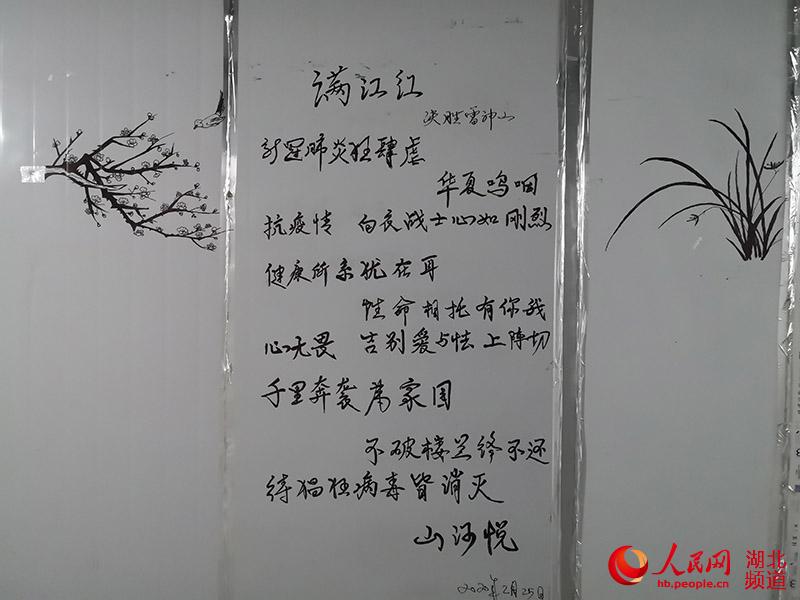 满江红
决胜雷神山
新冠肺炎狂肆虐
华夏呜咽
抗疫情 白衣战士心如刚烈
健康所系犹在耳
性命相托有你我
心无畏 告别爱与怯上阵切
千里奔袭为家国
不破楼兰终不还
待猖狂病毒皆消灭
山河悦
2020年2月25日
人民网 湖北频道
hb.people.cn